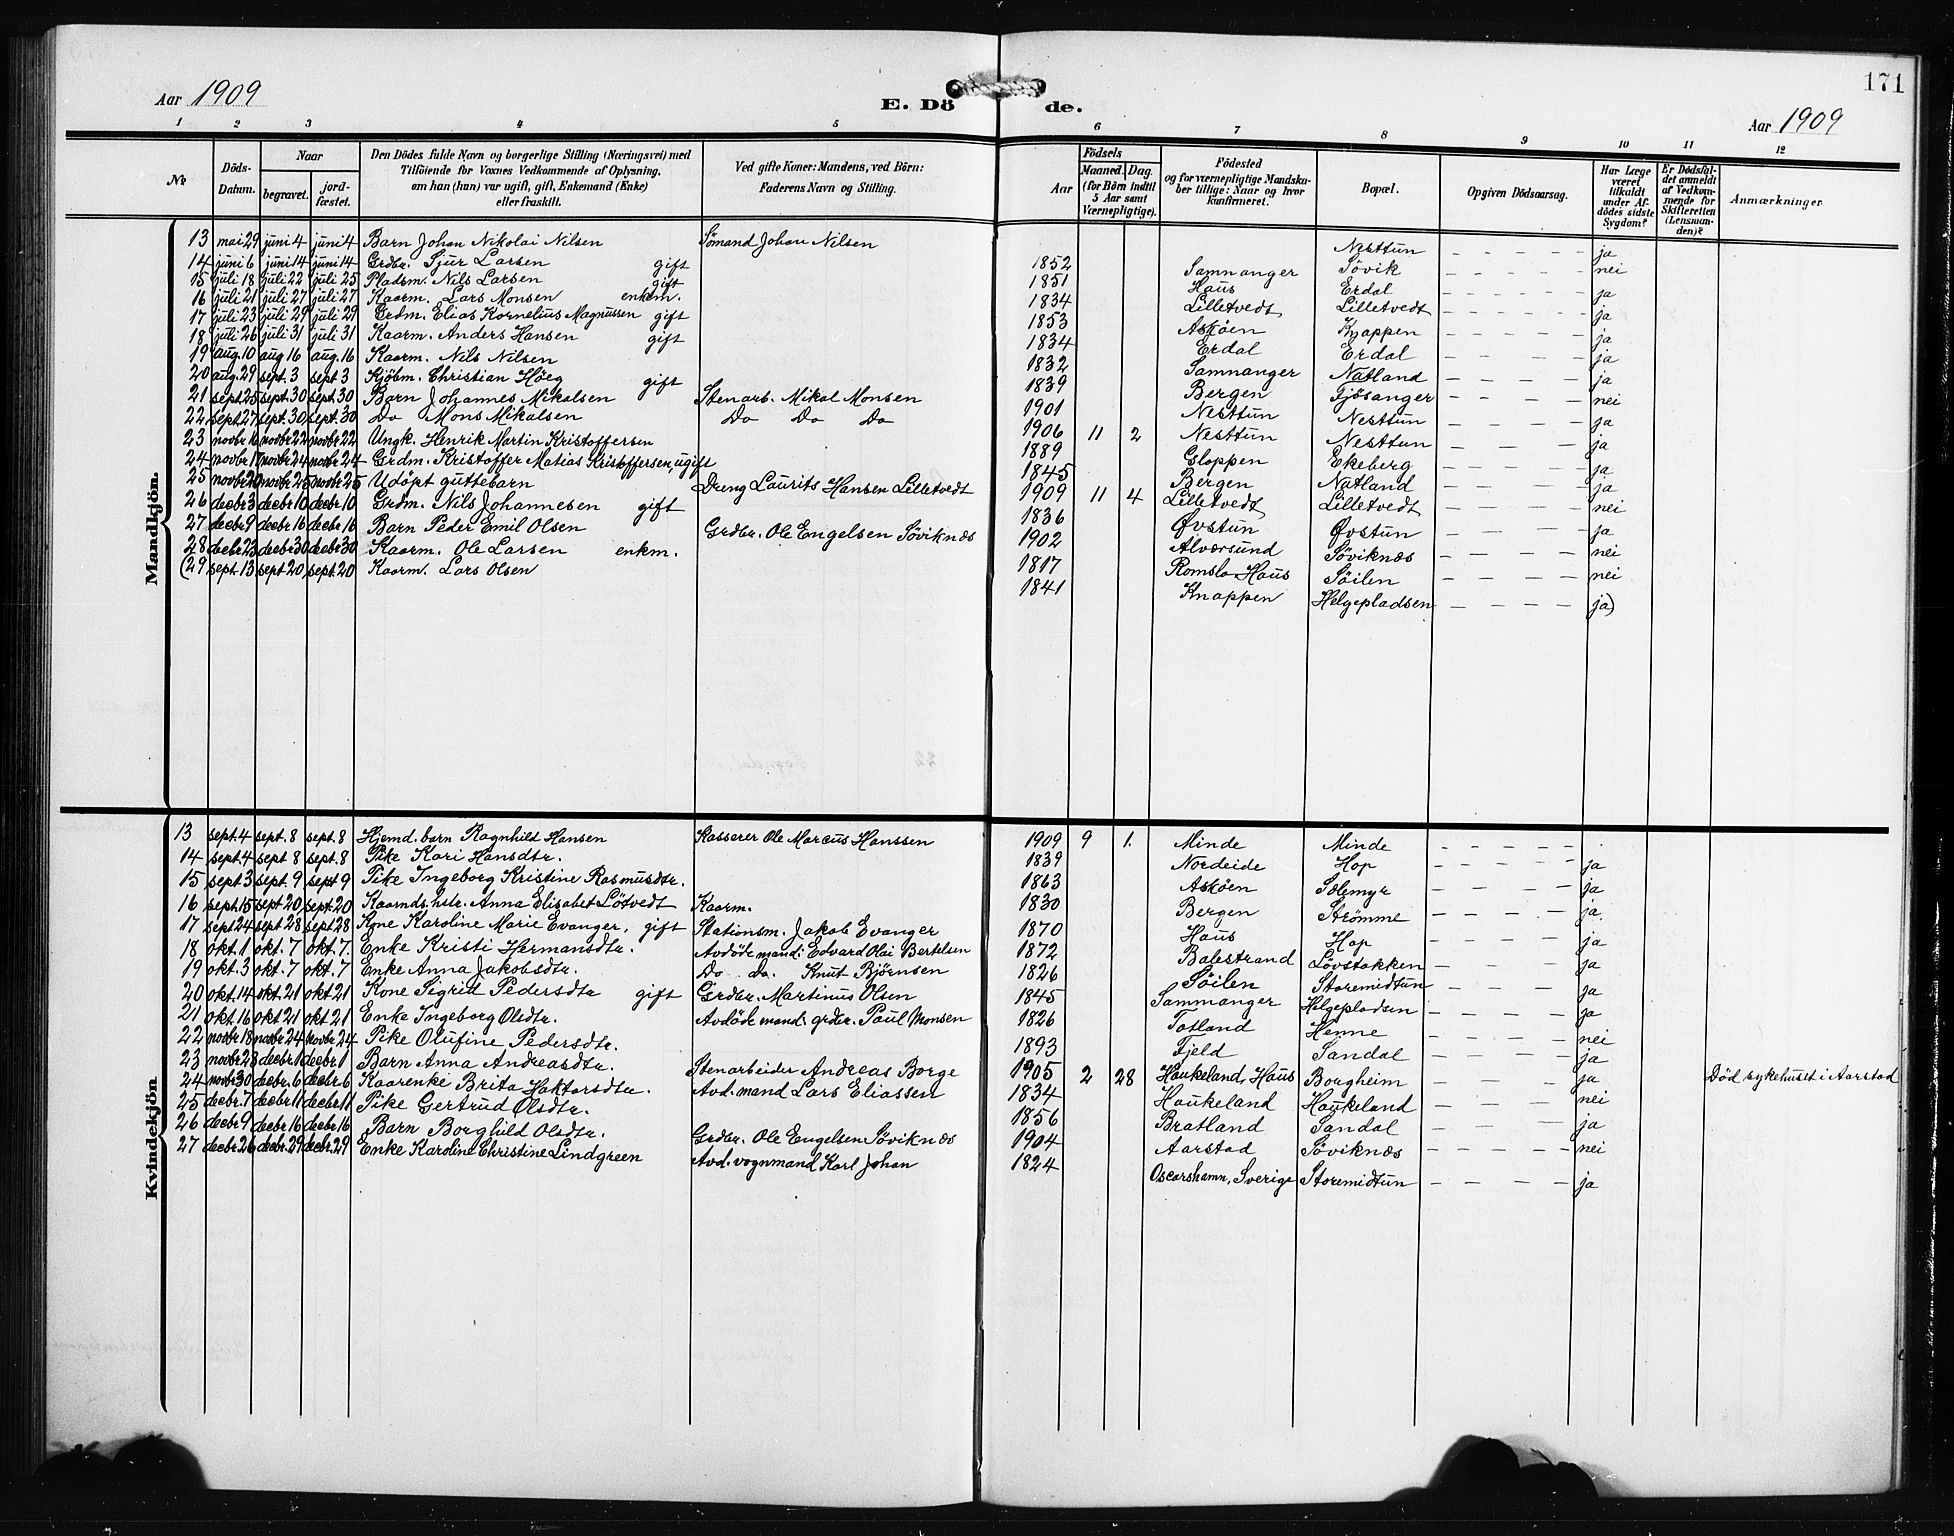 171
Aar 1909
E. Dö de.
Aar 1909
1 2 3 4 5 6 7 8 9 10 11 12
№
Döds-Datum.
Naar
begravet.
jord-fæstet.
Den Dödes fulde Navn og borgerlige Stilling (Næringsvei) med
Tilföiende for Voxnes Vedkommende af Oplysning,
om han (hun) var ugift, gift, Enkemand (Enke)
eller fraskilt.
Ved gifte Koner: Mandens, ved Börn:
Faderens Navn og Stilling.
Aar
Födsels
Maaned. Dag.
(for Börn indtil
5 Aar samt
Værnepligtige).
Födested
og for værnepligtige Mandska-
ber tillige: Naar og hvor
konfirmeret.
Bopæl.
Opgiven Dödsaarsag.
Har Læge
været
tilkaldt
under Af-
dödes sidste
Sygdom?
Er Dödsfal-
det anmeldt
af Vedkom-
mende for
Skifteretten
(Lensman-
den)?
Anmærkninger
Mandkjön.
13 mai 29 juni 4 juni 4 Barn Johan Nikolai Nilsen Sömand Johan Nilsen Nesttun — — — — ja
14 juni 6 juni 14 juni 14 Grdbr. Sjur Larsen gift 1852 Samnanger Sövik — — — — nei
15 juli 18 juli 22 juli 25 Pladsm. Nils Larsen gift 1851 Haus Erdal — — — — ja
16 juli 21 juli 27 juli 27 Kaarm. Lars Monsen enkm. 1834 Lilletvedt Lilletvedt — — — — ja
17 juli 23 juli 29 juli 29 Grdm. Elias Kornelius Magnussen gift 1853 Asköen Knappen — — — — ja
18 juli 26 juli 31 juli 31 Kaarm. Anders Hansen gift 1834 Erdal Erdal — — — — ja
19 aug. 10 aug 16 aug. 16 Kaarm. Nils Nilsen 1832 Samnanger Natland — — — — ja
20 aug. 29 sept. 3 sept 3 Kjöbm. Christian Höeg gift 1839 Bergen Fjösanger — — — — nei
21 sept. 25 sept. 30 sept. 30 Barn Johannes Mikalsen Stenarb. Mikal Monsen 1901 Nesttun Nesttun — — — — ja
22 sept. 27 sept. 30 sept. 30 Do Mons Mikalsen Do Do Do 1906 11 2 Nesttun Nesttun — — — — ja
23 novbr 16 novbr 22 novbr 22 Ungk. Henrik Martin Kristoffersen 1889 Gloppen Ekeberg — — — — ja
24 novbr 17 novbr 24 novbr 24 Grdm. Kristoffer Matias Kristoffersen, ugift 1845 Bergen Natland — — — — ja
25 novbr 20 novbr 25 novbr 25 Udöpt guttebarn Dreng Laurits Hansen Lilletvedt 1909 11 4 Lilletvedt Lilletvedt — — — — nei
26 decbr 3 decbr 10 decbr 10 Grdm. Nils Johannesen gift 1836 Øvstun Øvstun — — — — ja
27 decbr 9 decbr 16 decbr 16 Barn Peder Emil Olsen Grdbr. Ole Engelsen Söviknæs 1902 Alversund Söviknæs — — — — nei
28 decbr 23 decbr 30 decbr 30 Kaarm. Ole Larsen enkm. 1817 Romslo Haus Söilen — — — — nei
(29 sept. 13 sept 20 sept. 20 Kaarm. Lars Olsen 1841 Knappen Helgepladsen — — — — ja)
Kvindekjön
13 sept. 4 sept. 8 sept. 8 Hjemd. barn Ragnhild Hansen Kasserer Ole Marcus Hanssen 1909 9 1. Minde Minde — — — —
14 sept. 4 sept 8 sept. 8 Pike Kari Hansdtr. 1839 Nordeide Hop — — — — ja
15 sept 3 sept. 9 sept 9 Pike Ingeborg Kristine Rasmusdtr. 1863 Asköen Solemyr — — — — ja
16 sept. 15 sept 20 sept. 20 Kaarmds. hstr. Anna Elisabet Lötvedt Kaarm. 1830 Bergen Strömme — — — — ja.
17 sept 24 sept 28 sept 28 Kone Karoline Marie Evanger, gift Stationsm. Jakob Evanger 1870 Haus Hop — — — — ja
18 okt. 1 okt. 7 okt. 7. Enke Kristi Hermansdtr. Avdöde mand: Edvard Olai Bertelsen 1872 Balestrand Lövstakken — — — — ja
19 okt. 3 okt. 7 okt. 7 Enke Anna Jakobsdtr. Do. Do. Knut Björnsen 1826 Söilen Storemidtun — — — — ja
20 okt. 14 okt. 21 okt 21 Kone Sigrid Pedersdtr gift Grdbr. Martinus Olsen 1845 Sammanger Helgepladsen — — — — ja
21 okt. 16 okt 21 okt. 21 Enke Ingeborg Olsdtr. Avdöde mand: grdbr. Paul Monsen 1826 Totland Henne — — — — nei
22 novbr 18 novbr 24 novbr 24 Pike Olufine Pedersdtr. 1893 Fjeld Sandal — — — — ja
23 novbr 28 decbr. 1 decbr. 1 Barn Anna Andreasdtr. Stenarbeider Andreas Borge 1905 2 28 Haukeland, Haus Borgheim — — — — ja Död sykehuset i Aarstad
24 novbr 30 decbr. 6 decbr 6 Kaarenke Brita Haktorsdtr. Avd. mand Lars Eliassen 1834 Haukeland Haukeland — — — — nei
25 decbr. 7 decbr. 11 decbr 11 Pike Gertrud Olsdtr. 1856 Bratland Sandal — — — — ja
26 decbr 9 decbr 16 decbr 16 Barn Borghild Olsdtr. Grdbr. Ole Engelsen Söviknæs 1904 Aarstad Söviknæs — — — — nei
27 decbr. 26 decbr. 29 decbr. 29 Enke Karoline Christine Lindgreen Avd. vognmand Karl Johan 1824 Oscarshamn, Sverige Storemidtun — — — — ja